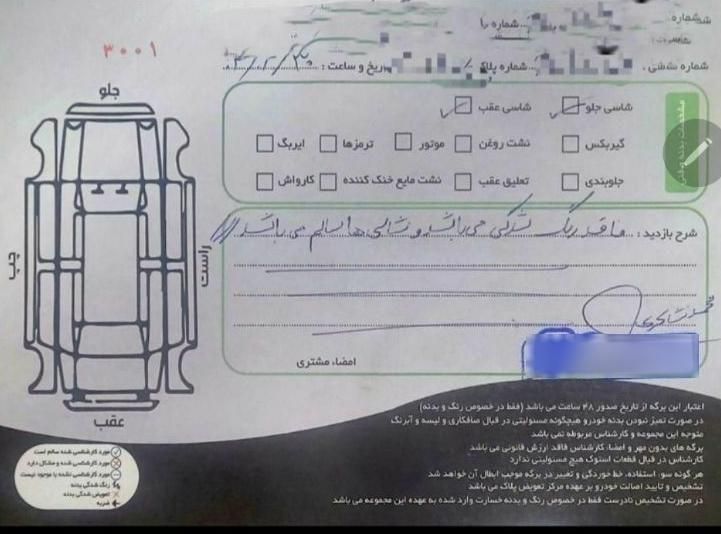 شماره
شماره
شماره شاسی : شماره پلاک : تاریخ و ساعت :
۳۰۰۱
جلو
عقب
راست
چپ
شاسی جلو شاسی عقب
گیربکس نشت روغن موتور ترمزها ایربگ
جلوبندی تعلیق عقب نشت مایع خنک کننده کارواش
شرح بازدید : فاقد رنگ شدگی می باشد و شاسی ها سالم می باشد
امضاء مشتری
اعتبار این برگه از تاریخ صدور ۴۸ ساعت می باشد (فقط در خصوص رنگ و بدنه)
در صورت تمیز نبودن بدنه خودرو هیچگونه مسئولیتی در قبال صافکاری و لیسه و آبرنگ
متوجه این مجموعه و کارشناس مربوطه نمی باشد
برگه های بدون مهر و امضاء کارشناس فاقد ارزش قانونی می باشد
کارشناس در قبال قطعات استوک هیچ مسئولیتی ندارد
هر گونه سوء استفاده، خط خوردگی و تغییر در برگه موجب ابطال آن خواهد شد
تشخیص و تایید اصالت خودرو بر عهده مرکز تعویض پلاک می باشد
در صورت تشخیص نادرست فقط در خصوص رنگ و بدنه خسارت وارد شده به عهده این مجموعه می باشد
مورد کارشناسی شده سالم است
مورد کارشناسی شده و مشکل دارد
مورد کارشناسی نشده یا موجود نیست
رنگ شدگی بدنه
تعویض شدگی بدنه
ضربه